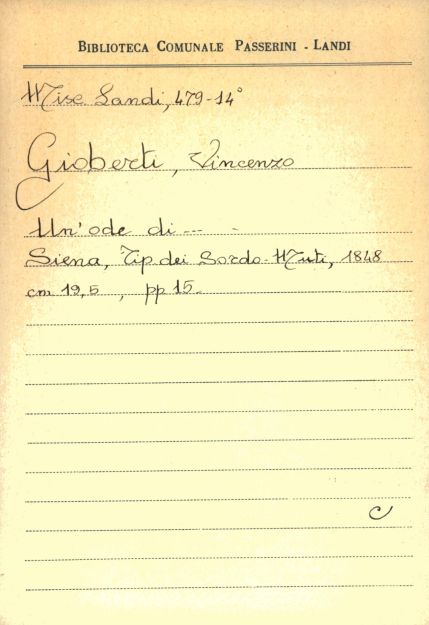 BIBLIOTECA COMUNALE PASSERINI - LANDI
Misc Landi, 479-14°
Gioberti, Vincenzo
Un'ode di ---
Siena, Tip dei Sordo-Muti, 1848
cm 19,5 , pp 15.
C